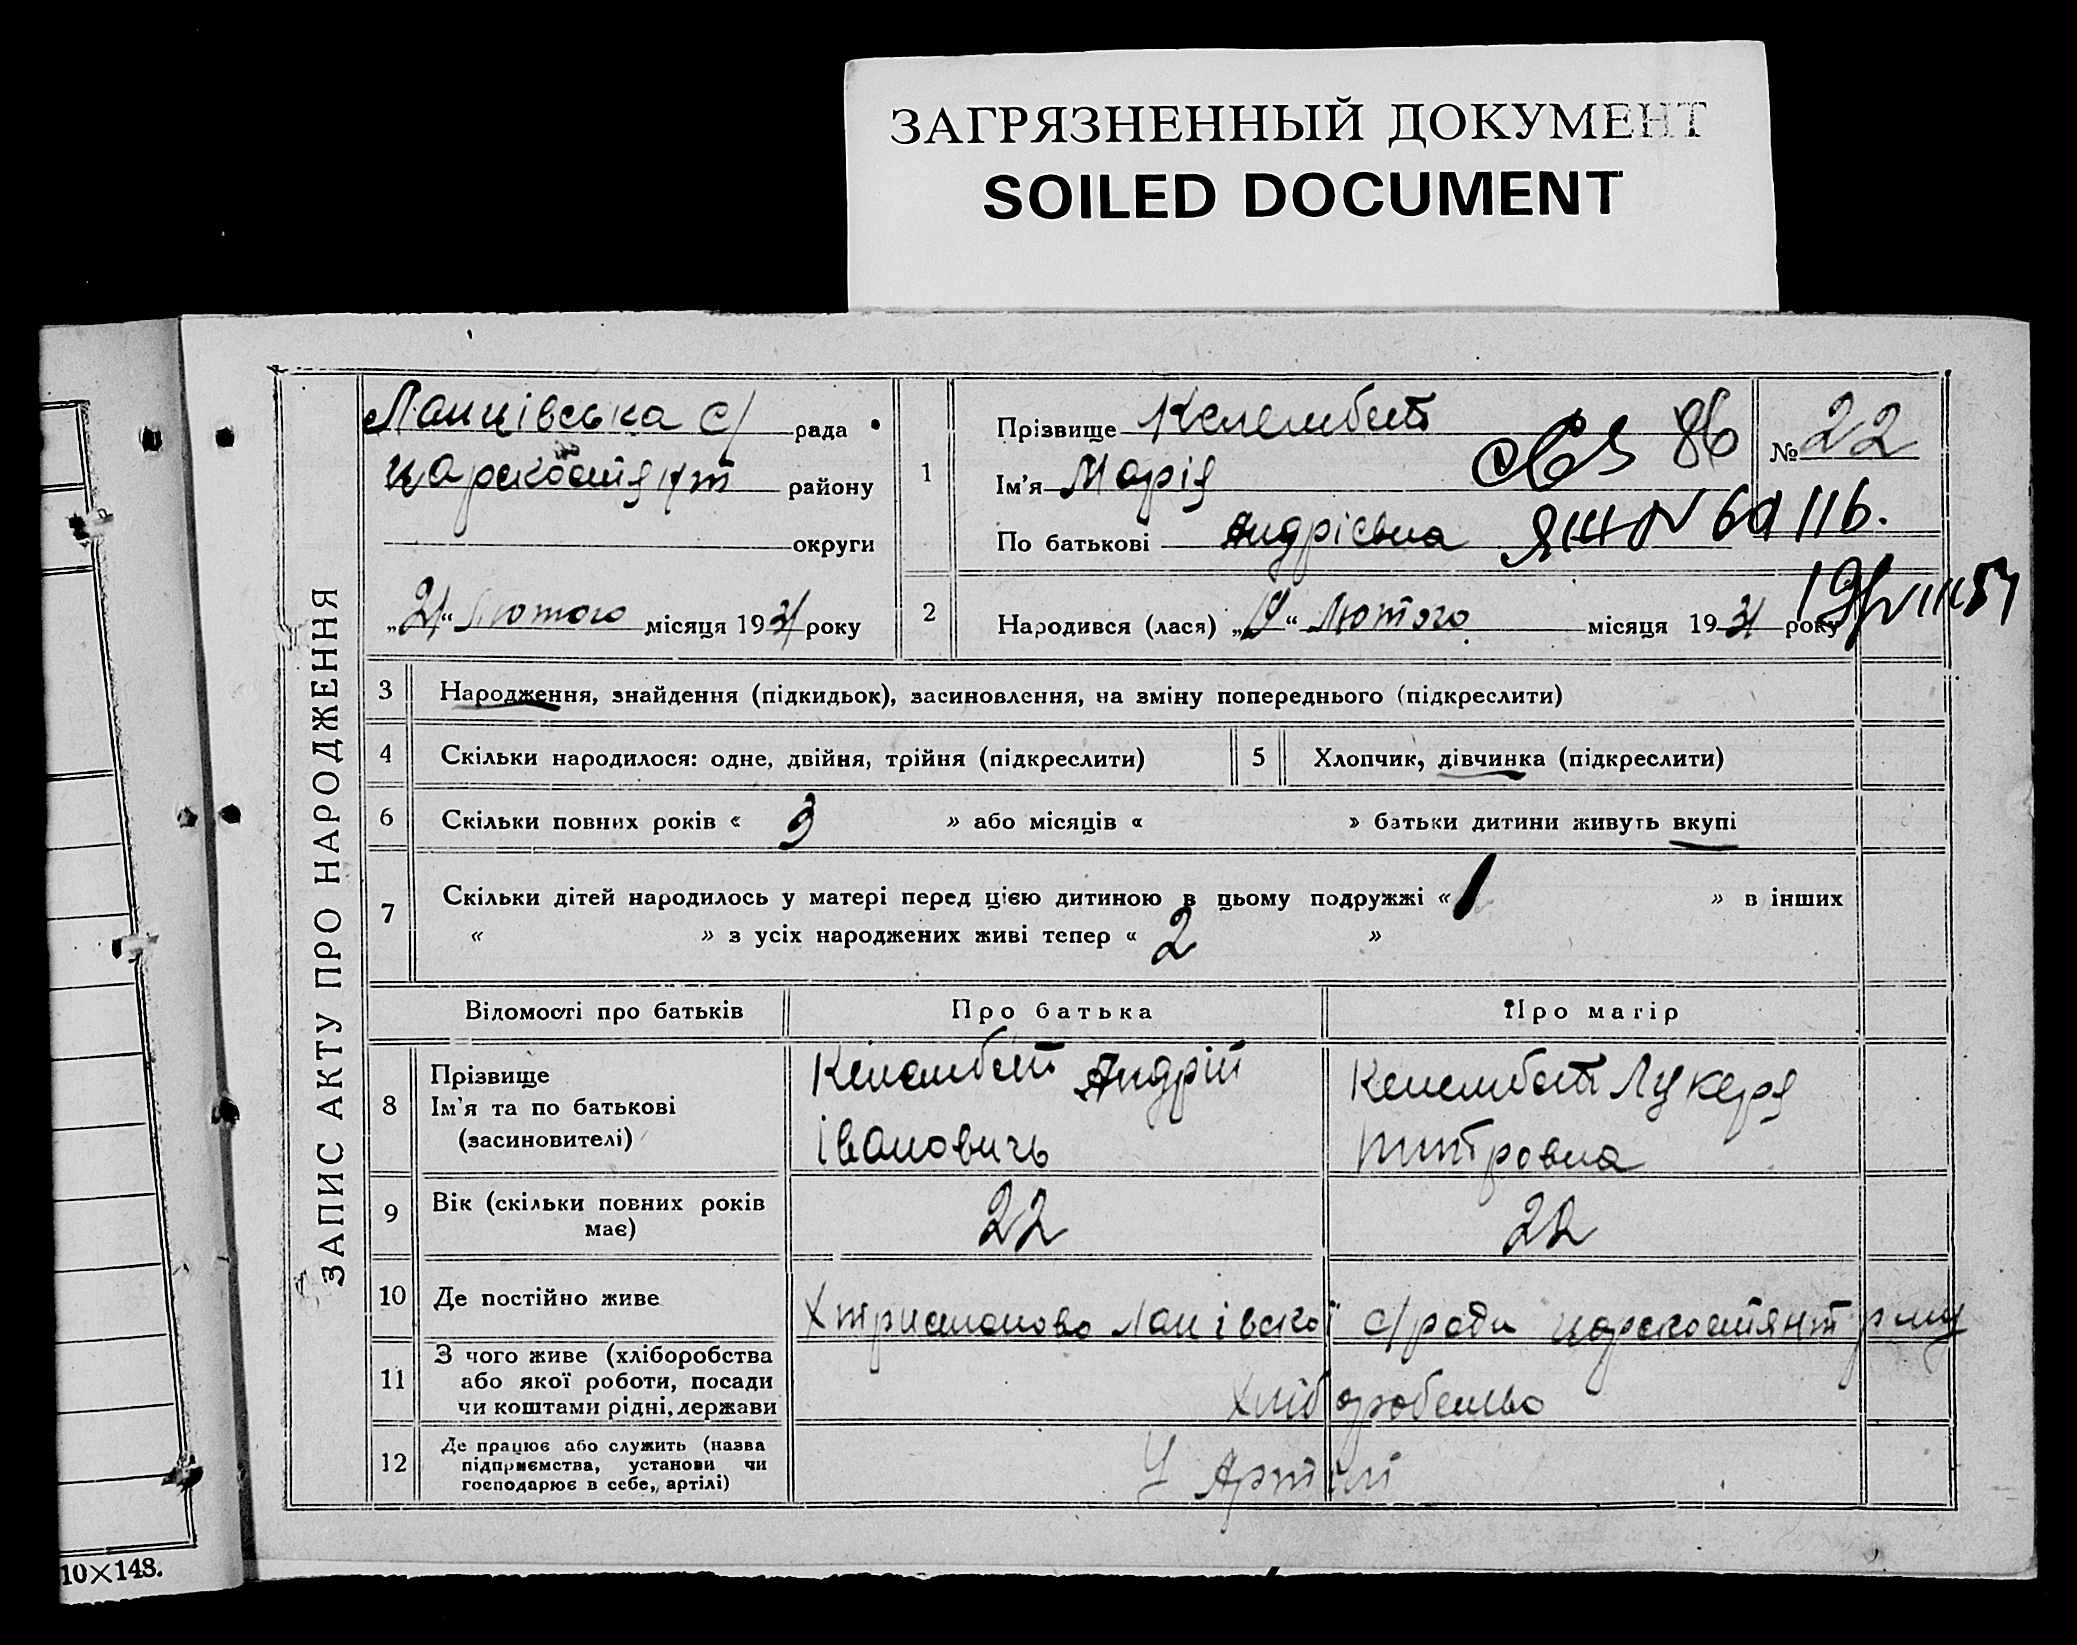 ЗАГРЯЗНЕННЫЙ ДОКУМЕНТ
SOILED DOCUMENT
ЗАПИС АКТУ ПРО НАРОДЖЕННЯ
Ланцівська с/ рада
району
округи
„21“ Лютого місяця 1931 року
1
Прізвище Келембет
Ім'я Марія
По батькові Андрієвна
86
№ 22
ЯШ № 69116.
2
Народився (лася) „ “ Лютого місяця 1931 року
3 Народження, знайдення (підкидьок), засиновлення, на зміну попереднього (підкреслити)
4 Скільки народилося: одне, двійня, трійня (підкреслити)
5 Хлопчик, дівчинка (підкреслити)
6 Скільки повних років « 3 » або місяців « » батьки дитини живуть вкупі
7 Скільки дітей народилось у матері перед цією дитиною в цьому подружжі « 1 » в інших
« » з усіх народжених живі тепер « 2 »
Відомості про батьків Про батька Про матір
8 Прізвище
Ім'я та по батькові
(засиновителі)
Келембет Андрій
Івановичь
Келембет Лукеря
9 Вік (скільки повних років
має)
22 22
10 Де постійно живе с/ради
11 З чого живе (хліборобства
або якої роботи, посади
чи коштами рідні, держави
Хліборобство
12 Де працює або служить (назва
підприємства, установи чи
господарює в себе, артілі)
У Артілі
10×148.